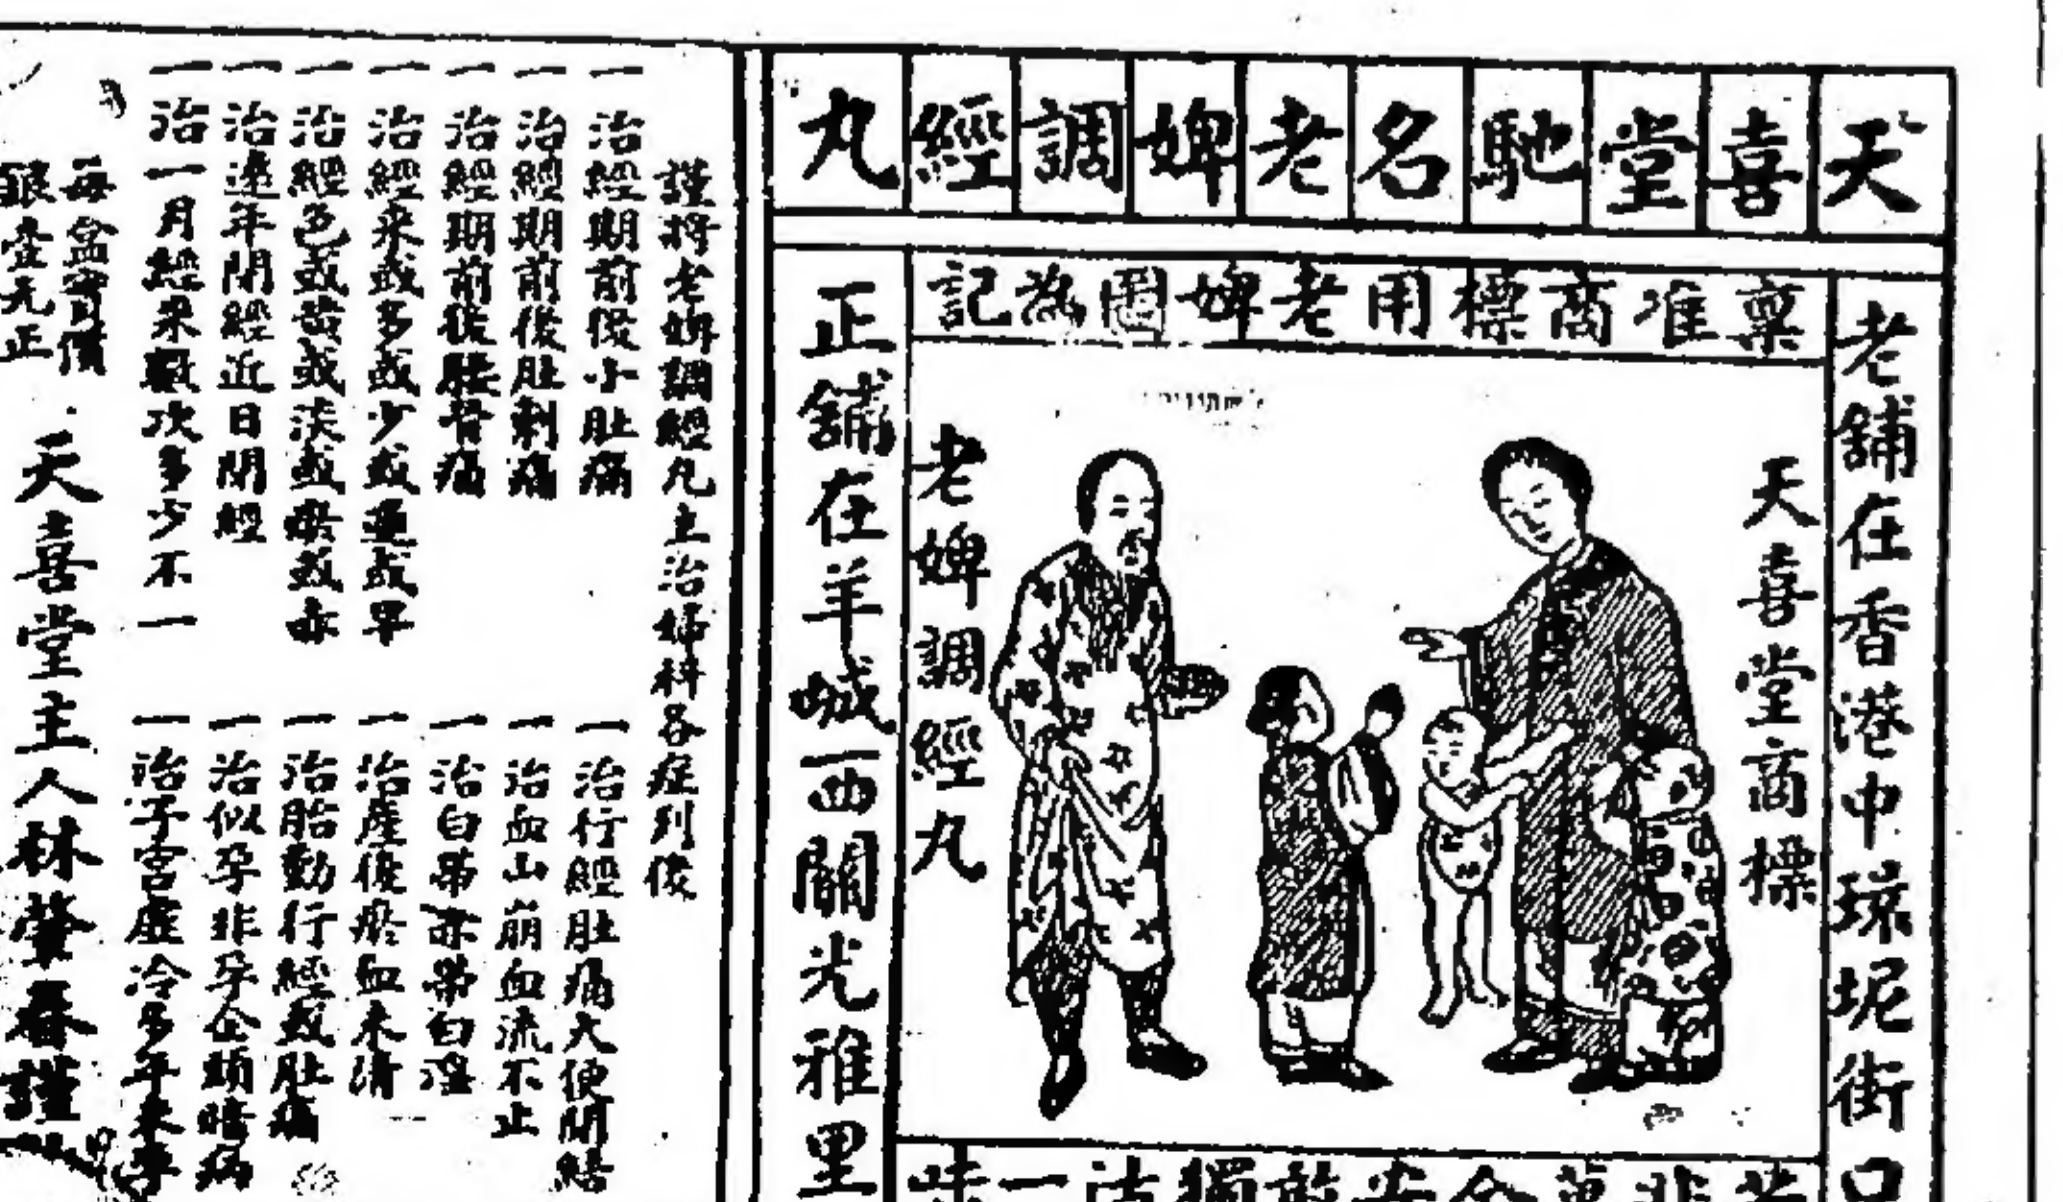 天喜堂馳名老婢調經丸
稟准商標用老婢圖為記
老舖在香港中環坭街口
天喜堂商標
老婢調經丸
正舖在羊城西關光雅里
謹將老婢調經丸主治婦科各症列後
一治經期前後小肚痛
一治經期前後肚刺痛
一治經期前後腰骨痛
一治經來或多或少或遲或早
一治經色或黃或淡或瘀或赤
一治遠年閉經近日閉經
一治一月經來數次多少不一
一治行經肚痛大便閉結
一治血山崩血流不止
一治白帶赤帶白淫
一治產後瘀血未清
一治胎動行經或肚痛
一治似孕非孕企頭暗病
一治子宮虛冷多年未孕
每盒實價
銀壹元正
天喜堂主人林肇春謹